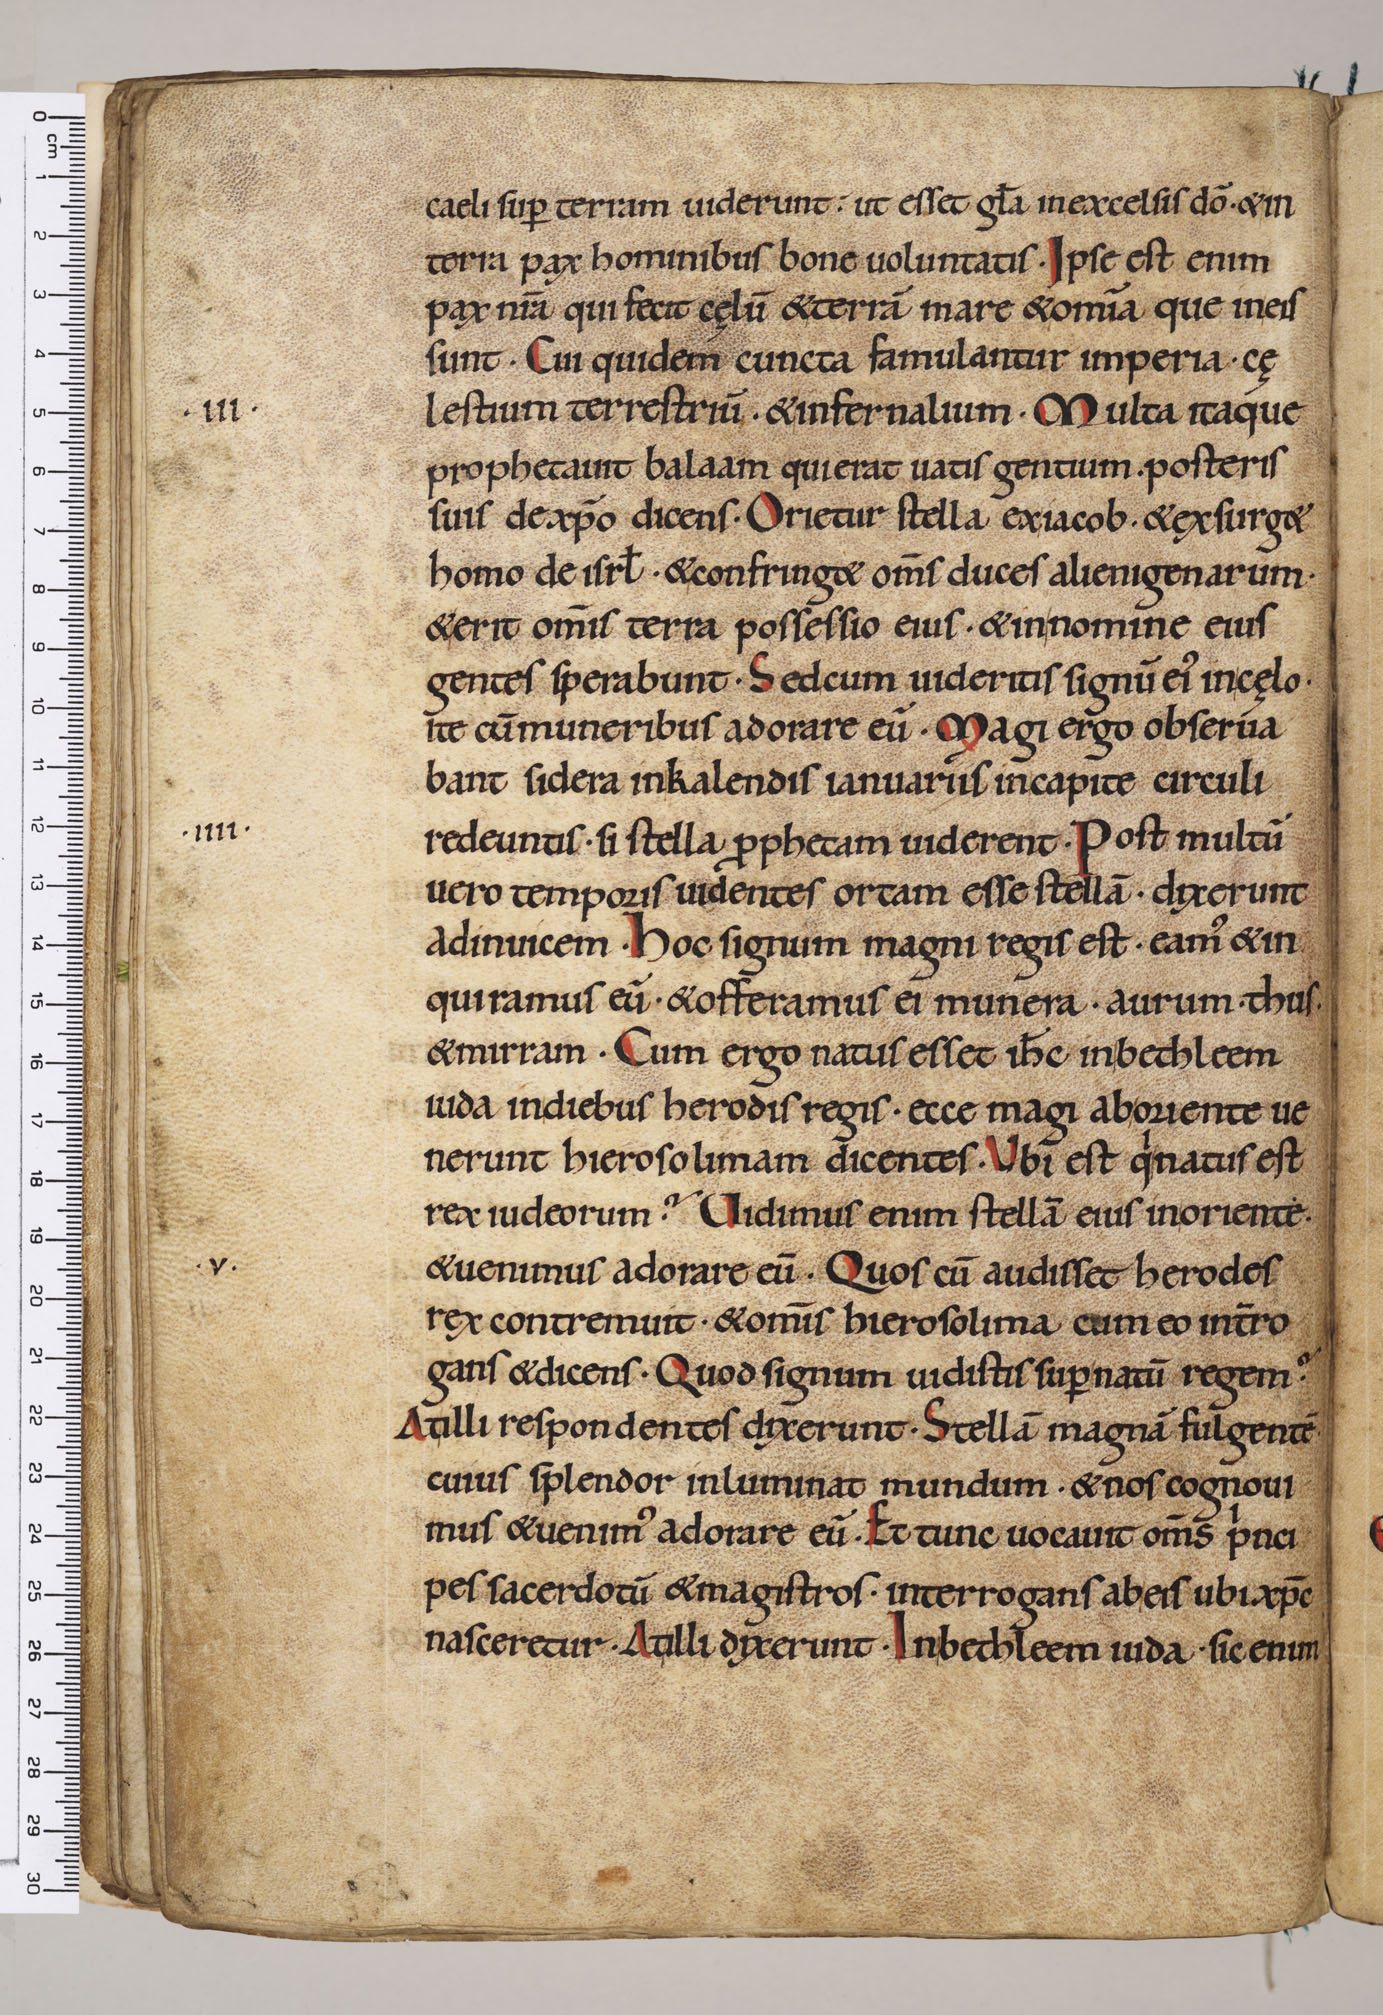 caeli sup̱ terram uiderunt· ut esset gl̄a inexcelsis dō·&in
terra pax hominibus bone uoluntatis· Ipse est enim
pax nr̄a qui fecit cęlū &terrā mare &om̄a que ineis
sunt· Cui quidem cuncta famulantur imperia· cę
·III· lestium terrestriū·&infernalium· Multa itaque
prophetauit balaam quierat uatis gentium·posteris
suis dexp̄o dicens· Orietur stella exiacob·&exsurg&
homo de isrł·&confring& om̄s duces alienigenarum·
&erit om̄is terra possessio eius·&innomine eius
gentes sperabunt· Sedcum uideritis signū ei' incęlo·
ite cūmuneribus adorare eū· Magi ergo obserua
bant sidera inkalendis ianuariis incapite circuli
·IIII· redeuntis·si stella ꝓphetam uiderent· Post multū
uero temporis uidentes ortam esse stellā· dixerunt
adinuicem· Hoc signum magni regis est· eam' &in
quiramus eū·&offeramus ei munera· aurum·thus·
&mirram· Cum ergo natus esset ih̄c inbethleem
iuda indiebus herodis regis· ecce magi aboriente ue
nerunt hierosolimam dicentes· Vbi est qⁱnatus est
rex iudeorum? Uidimus enim stellā eius inoriente·
·V· &uenimus adorare eū· Quos cū audisset herodes
rex contremuit·&om̄is hierosolima cum eo int̄ro
gans &dicens· Quod signum uidistis sup̱natū regem?
Atilli respondentes dixerunt· Stellā magnā fulgentē
cuius splendor inluminat mundum·&nos cognoui
mus &uenim' adorare eū· Et tunc uocauit om̄s pⁱnci
pes sacerdotū &magistros· interrogans abeis ubi xp̄c
nasceretur· Atilli dixerunt· Inbethleem iuda·sic enim
0 cm 1 2 3 4 5 6 7 8 9 10 11 12 13 14 15 16 17 18 19 20 21 22 23 24 25 26 27 28 29 30